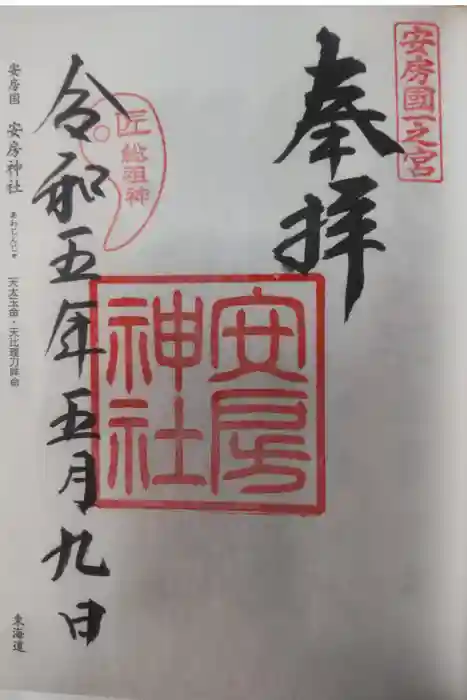 安房國一之宮
奉拝
安房
神社
匠
総祖神
令和五年五月九日
安房国 安房神社 あわじんじゃ 天太玉命・天比理刀咩命 東海道